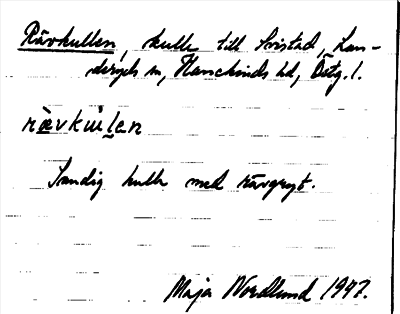 Rävkullen, kulle till Svistad, Lan-
deryds sn, Hanekinds hd, Östg. l.
rävkulen
Sandig kulle med rävgryt.
Maja Nordlund 1947.